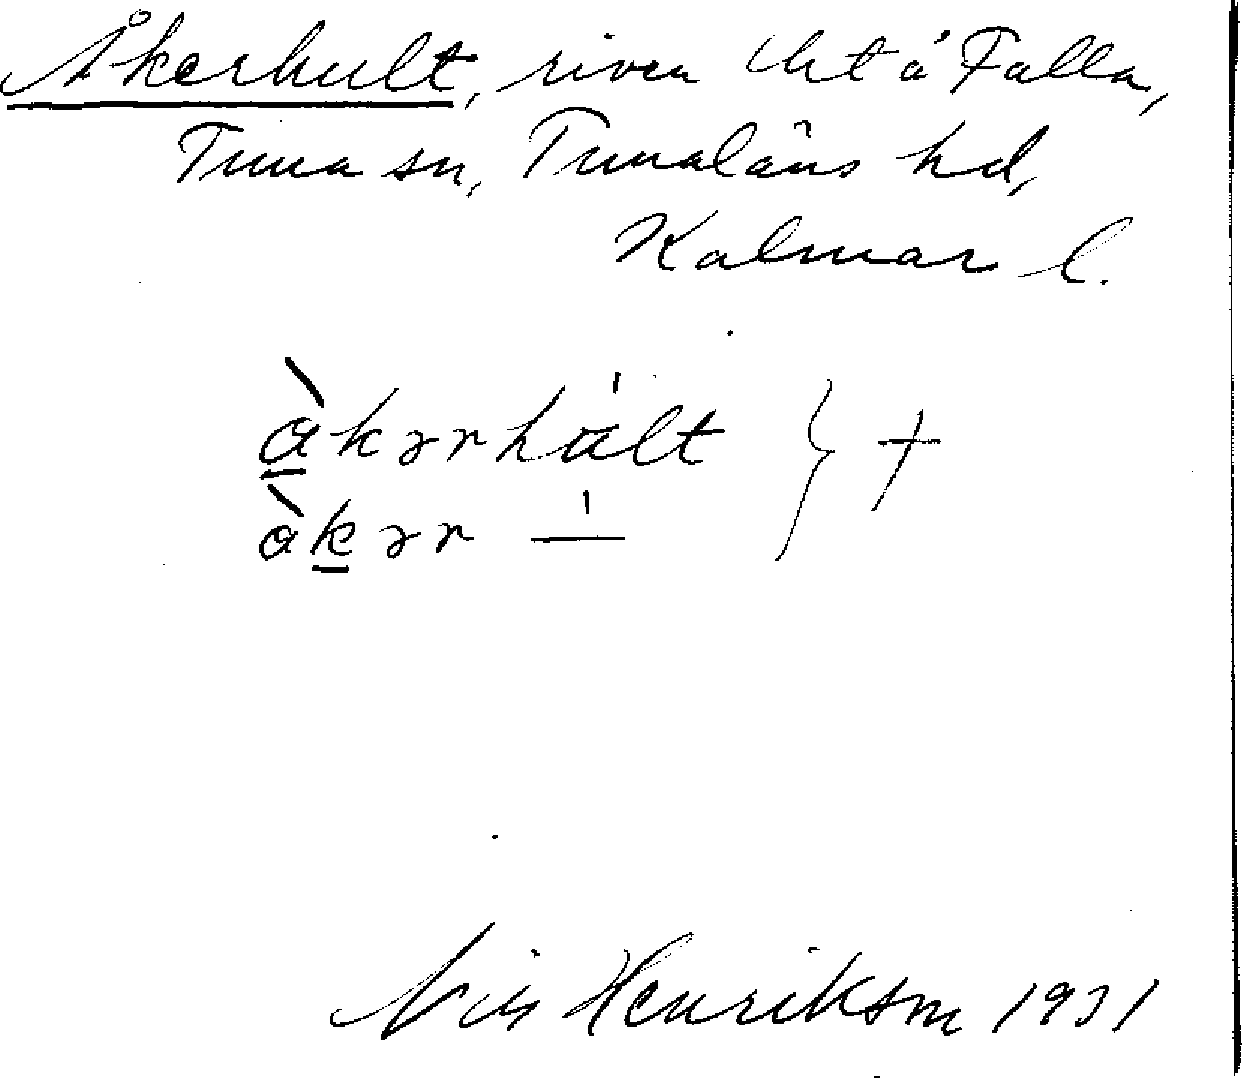 Åkerhult, riven lht å Falla,
Tuna sn, Tunaläns hd,
Kalmar l.
àkərhúlt } +
àkər —
Nils Henrikson 1931